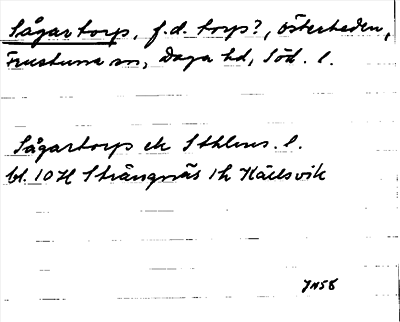 Sågartorp, f.d. torp?, Österheden,
Frustuna sn, Daga hd, Söd. l.
Sågartorp ek Sthlms. l.
bl. 10 H Strängnäs 1h Härlsvik